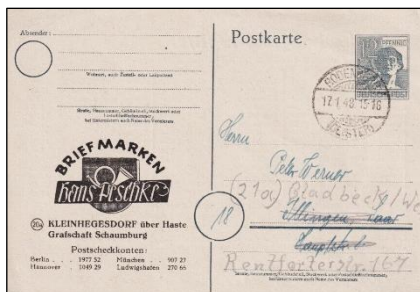 Absender:
Wohnort, auch Zustell- oder Leitpostamt
Straße, Hausnummer, Gebäudeteil, Stockwerk oder Postschließfachnummer,
bei Untermietern auch Name des Vermieters.
BRIEFMARKEN
Hans Peschke
20a KLEINHEGESDORF über Haste
Grafschaft Schaumburg
Postscheckkonten:
Berlin . . . 1977 52 München . . 907 23
Hannover . . 1049 29 Ludwigshafen 270 66
Postkarte
17.1.48. 15-16
Herrn
Peter Werner
(21a) Gladbeck / We
Illingen, Saar
Hauptstr. 1
18
Rentforterstr. 167
Straße, Hausnummer, Gebäudeteil, Stockwerk oder Postschließfachnummer,
bei Untermietern auch Name des Vermieters